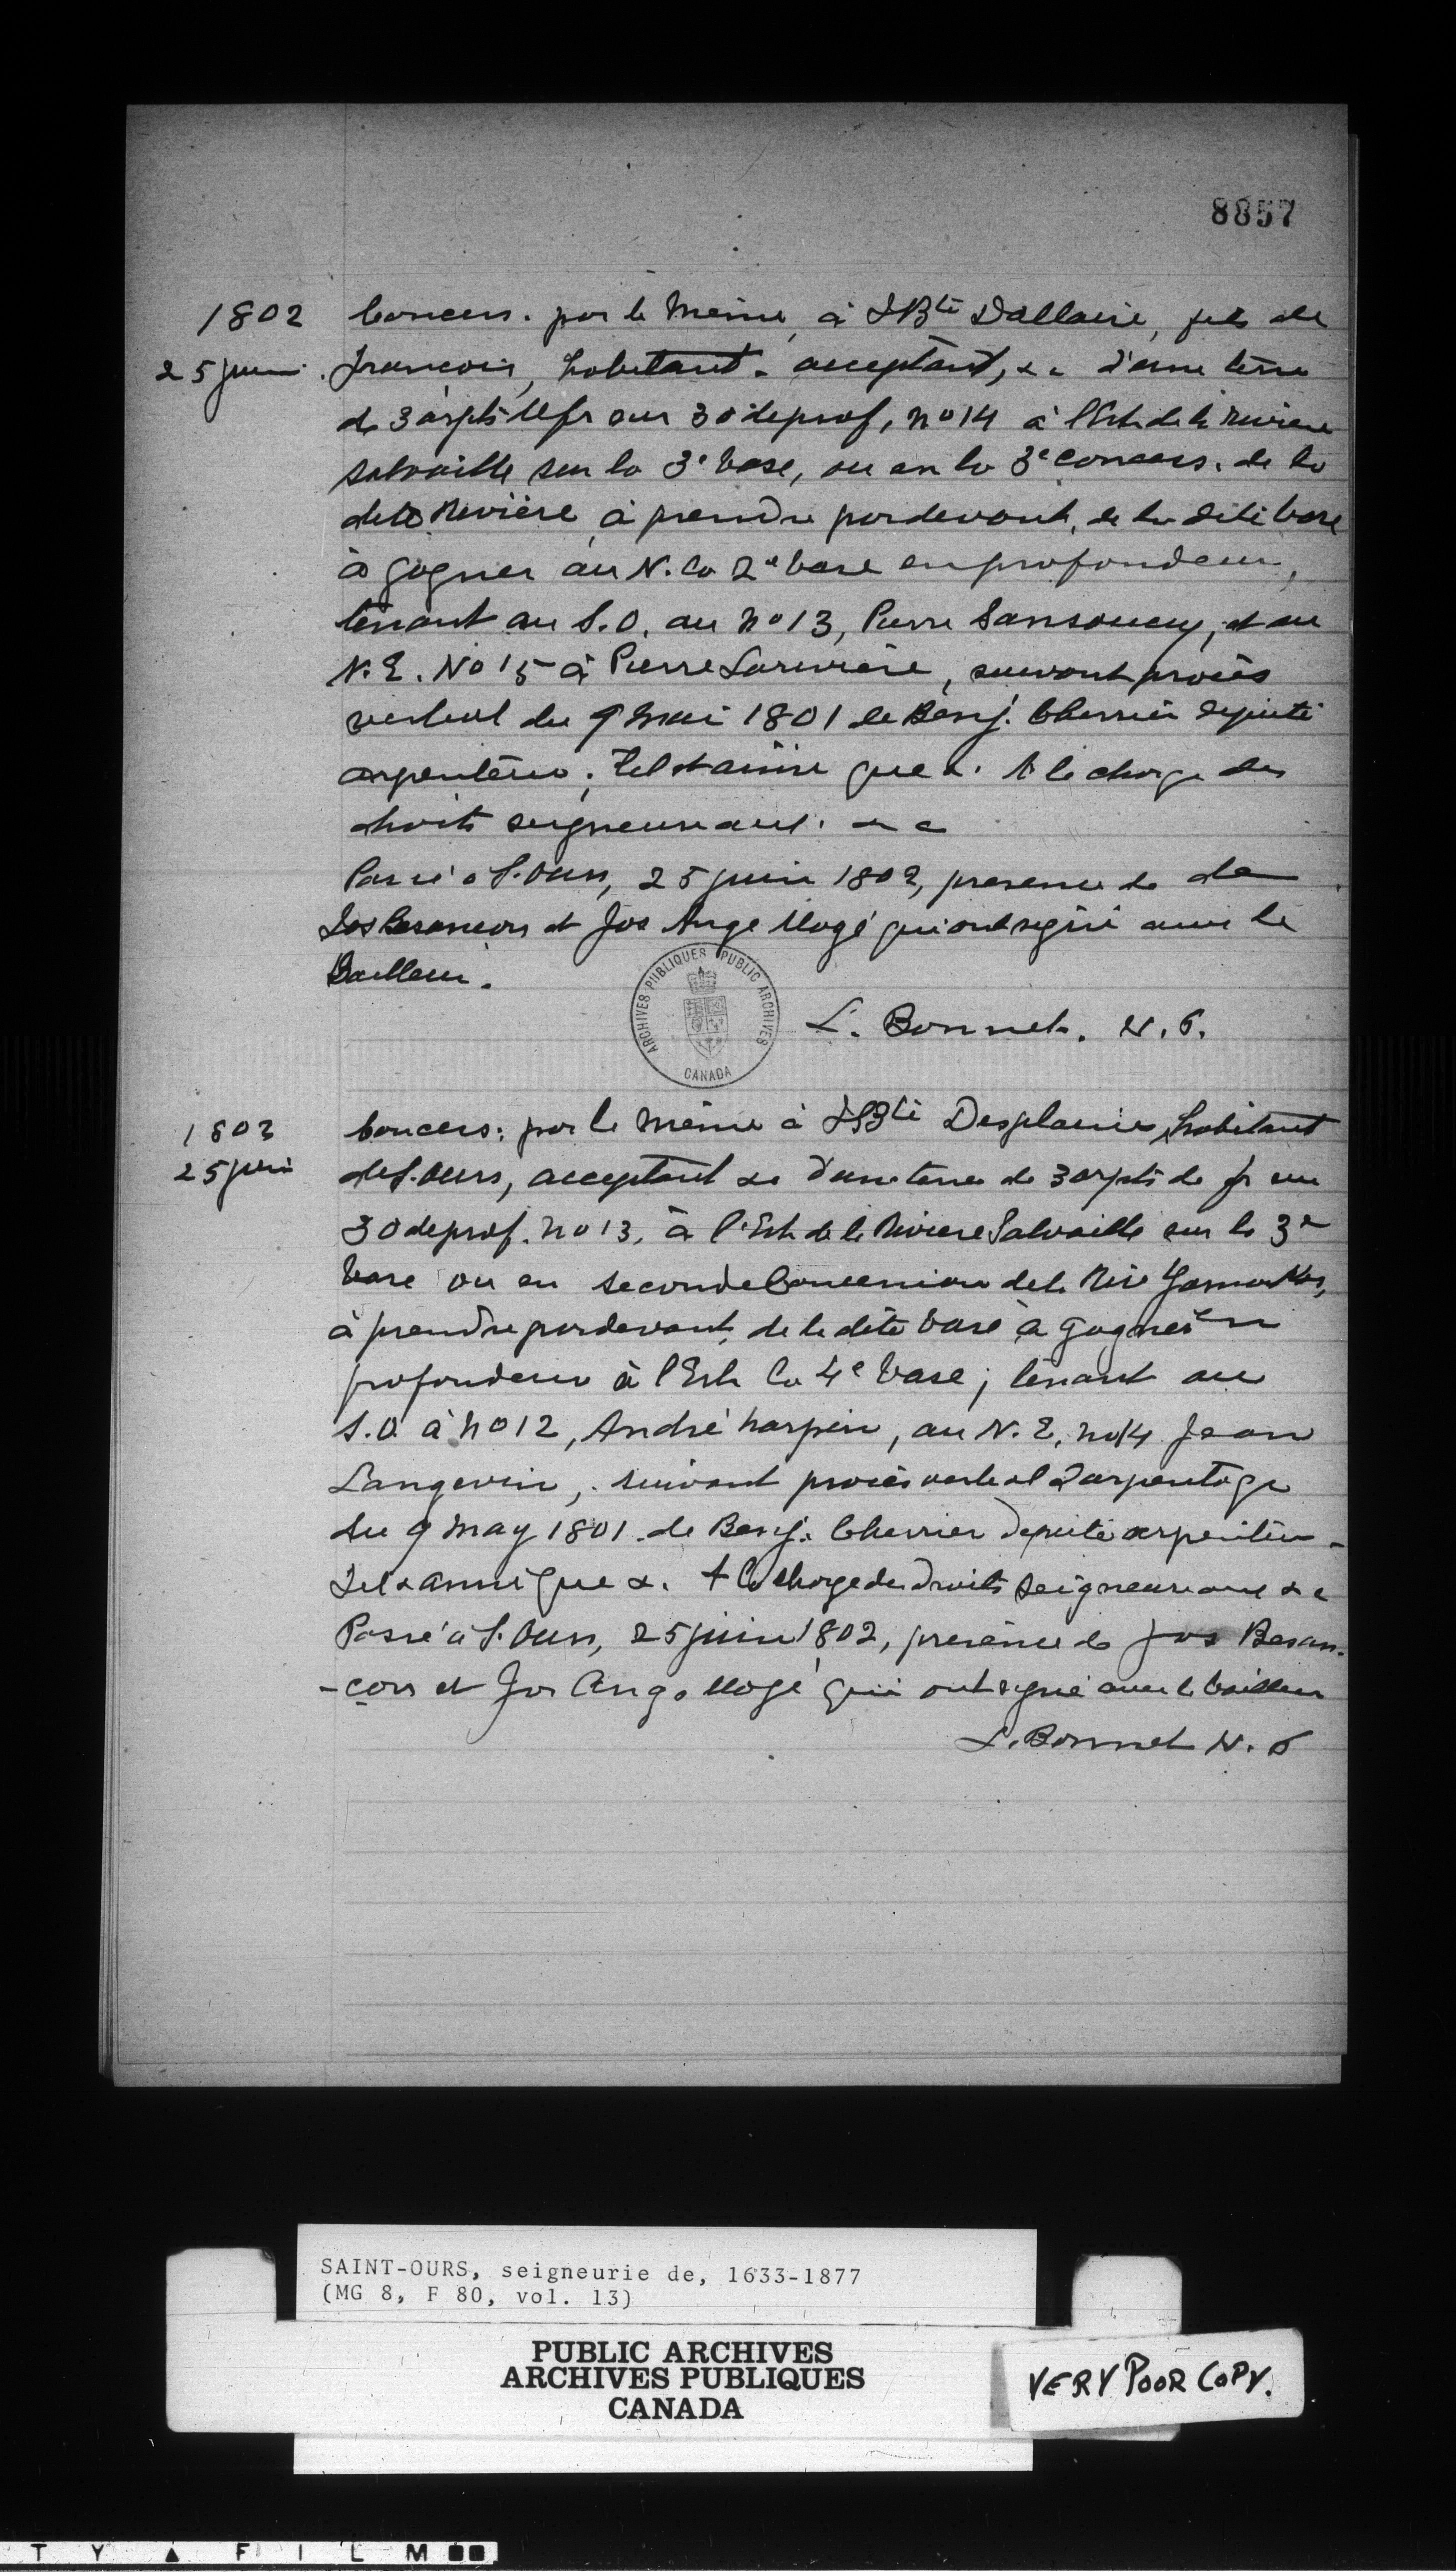 8857
1802 Concess. par le même, à JBte Dallaire, fils de
25 juin. François, habitant. acceptant, &c d'une terre
de 3 arpts de fr sur 30 de prof, no 14 à l'Est de la riviere
Salvaille sur la 3e base, ou en la 3e concess. de la
dete Rivière à prendre pardevant, de la dite base
à gagner au N. la 2e base en profondeur,
tenant au S.O. au no 13, Pierre Sansoucy, et au
N.E. No 15 à Pierre Larivière, suivant procès
verbal du 9 mai 1801 de Benj. Cherrier député
arpenteur; Tel et ainsi que &. A la charge des
droits seigneuriaux. &c
Passé à S. Ours, 25 juin 1802, presence de de
Jos Besancon et Jos Ange Mogé qui ont signé avec le
Bailleur.
ARCHIVES PUBLIQUES PUBLIC ARCHIVES
CANADA
L. Bonnet. N. P.
1802 Concess. par le même à JBte Desplaines, habitant
25 juin de S. Ours, acceptant &c d'une terre de 3 arpts de fr sur
30 de prof. no 13, à l'Est de la Riviere Salvaille sur la 3e
base ou en seconde Concession de la Riv Yamaska,
à prendre pardevant, de la dite base à gagner en
profondeur à l'Est la 4e base; tenant au
S.O à no 12, André harpin, au N.E, no 14 Jean
Langevin, suivant procès verbal d'arpentage
du 9 may 1801 de Benj. Cherrier député arpenteur -
Tel & ainsi que &. A la charge des droits seigneuriaux &c
Passé à S. Ours, 25 juin 1802, presence de Jos Besan-
-con et Jos Ange Mogé qui ont signé avec le bailleur
L. Bonnet N. P
SAINT-OURS, seigneurie de, 1633-1877
(MG 8, F 80, vol. 13)
PUBLIC ARCHIVES
ARCHIVES PUBLIQUES
CANADA
VERY POOR COPY.
T Y ▲ F I L M